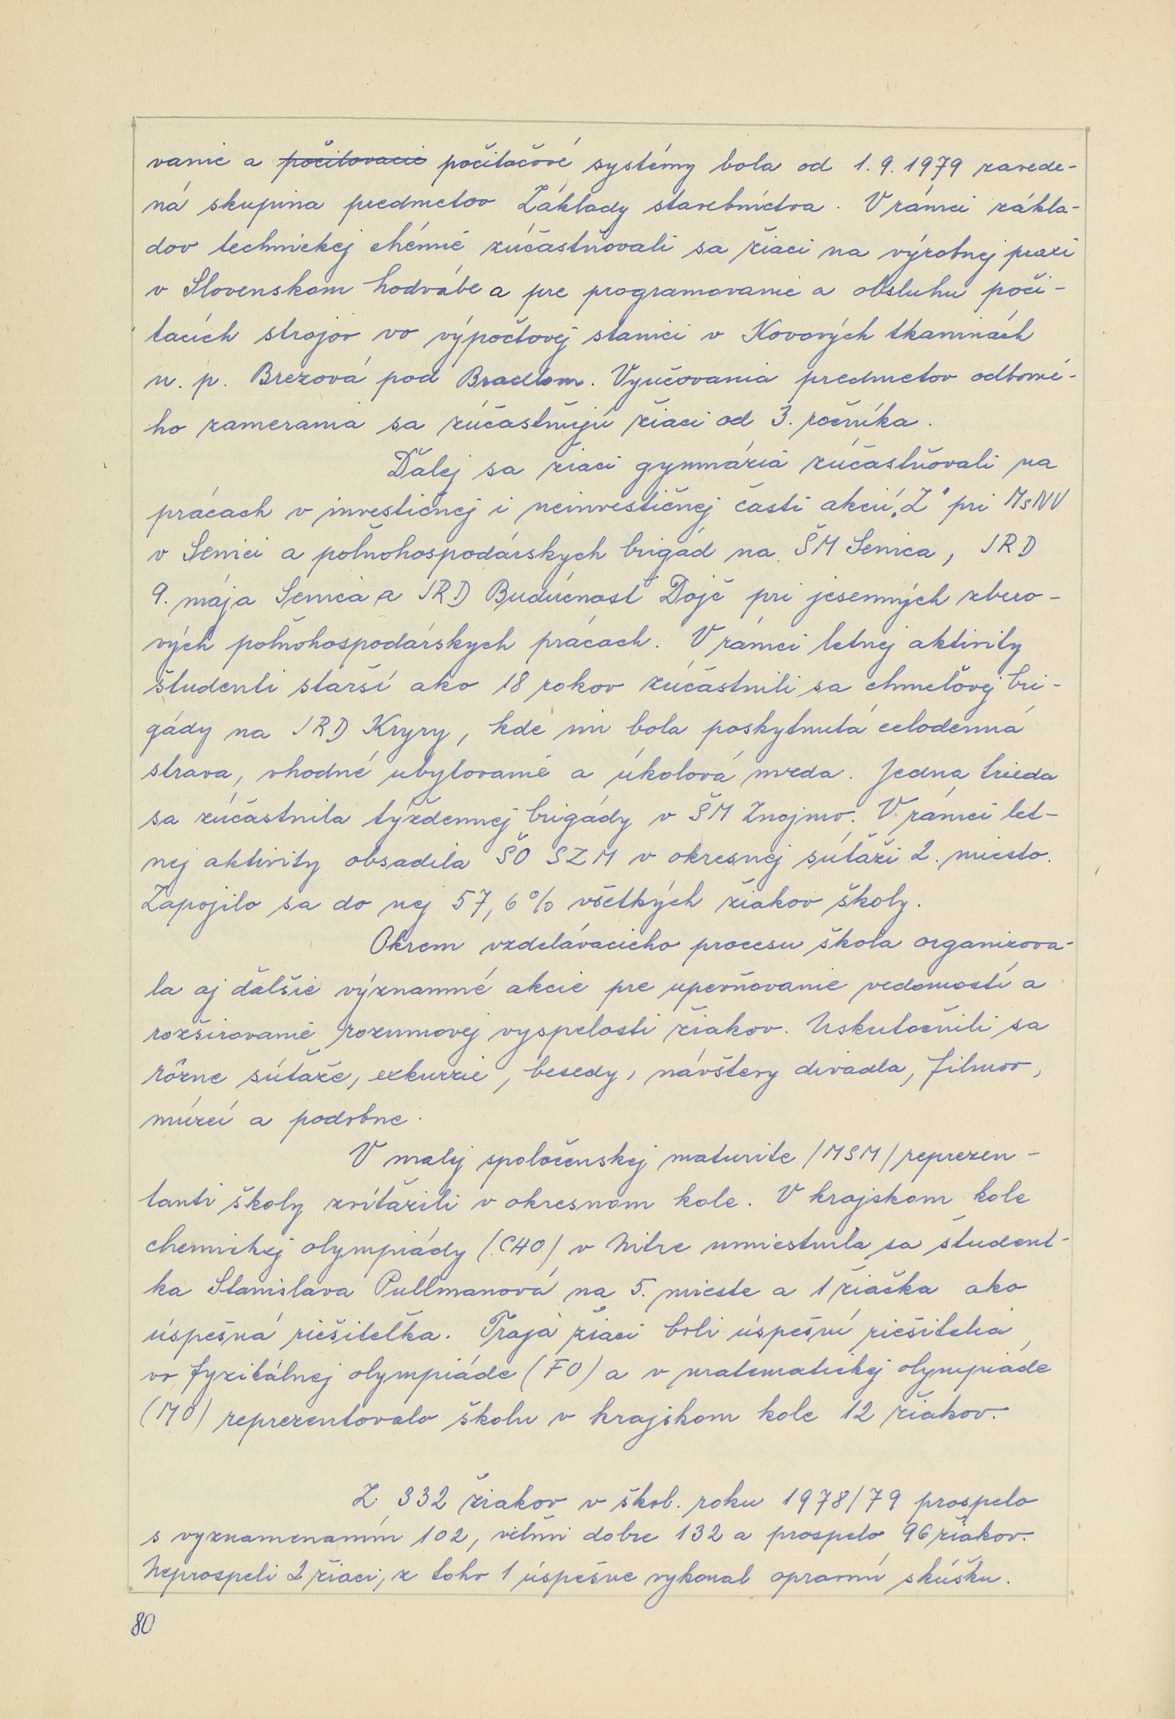 vanie a počitovacie počítačové systémy bola od 1. 9. 1979 zavede-
ná skupina predmetov Základy stavebníctva. V rámci zákla-
dov technickej chémie zúčastňovali sa žiaci na výrobnej praxi
v Slovenskom hodvábe a pre programovanie a obsluhu počí-
tacích strojov vo výpočtovej stanici v Kovových tkaninách
n. p. Brezová pod Bradlom. Vyučovania predmetov odborné-
ho zamerania sa zúčastňujú žiaci od 3. ročníka.
Ďalej sa žiaci gymnázia zúčastňovali na
prácach v investičnej i neinvestičnej časti akcií „Z" pri MsNV
v Senici a poľnohospodárskych brigád na ŠM Senica, JRD
9. mája Senica a JRD Budúcnosť Dojč pri jesenných zbero-
vých poľnohospodárskych prácach. V rámci letnej aktivity
študenti starší ako 18 rokov zúčastnili sa chmeľovej bri-
gády na JRD Kryry, kde im bola poskytnutá celodenná
strava, vhodné ubytovanie a úkolová mzda. Jedna trieda
sa zúčastnila týždennej brigády v ŠM Znojmo. V rámci let-
nej aktivity obsadila ŠO SZM v okresnej súťaži 2. miesto.
Zapojilo sa do nej 57,6% všetkých žiakov školy.
Okrem vzdelávacieho procesu škola organizova-
la aj ďalšie významné akcie pre upevňovanie vedomostí a
rozširovanie rozumovej vyspelosti žiakov. Uskutočnili sa
rôzne súťaže, exkurzie, besedy, návštevy divadla, filmov,
múzeí a podobne.
V malej spoločenskej maturite /MSM/ reprezen-
tanti školy zvíťazili v okresnom kole. V krajskom kole
chemickej olympiády (CHO) v Nitre umiestnila sa študent-
ka Stanislava Pullmanová na 5. mieste a 1 žiačka ako
úspešná riešiteľka. Traja žiaci boli úspešní riešitelia
vo fyzikálnej olympiáde (FO) a v matematickej olympiáde
(MO) reprezentovalo školu v krajskom kole 12 žiakov.
Z 332 žiakov v škol. roku 1978/79 prospelo
s vyznamenaním 102, veľmi dobre 132 a prospelo 96 žiakov.
Neprospeli 2 žiaci, z toho 1 úspešne vykonal opravnú skúšku.
80